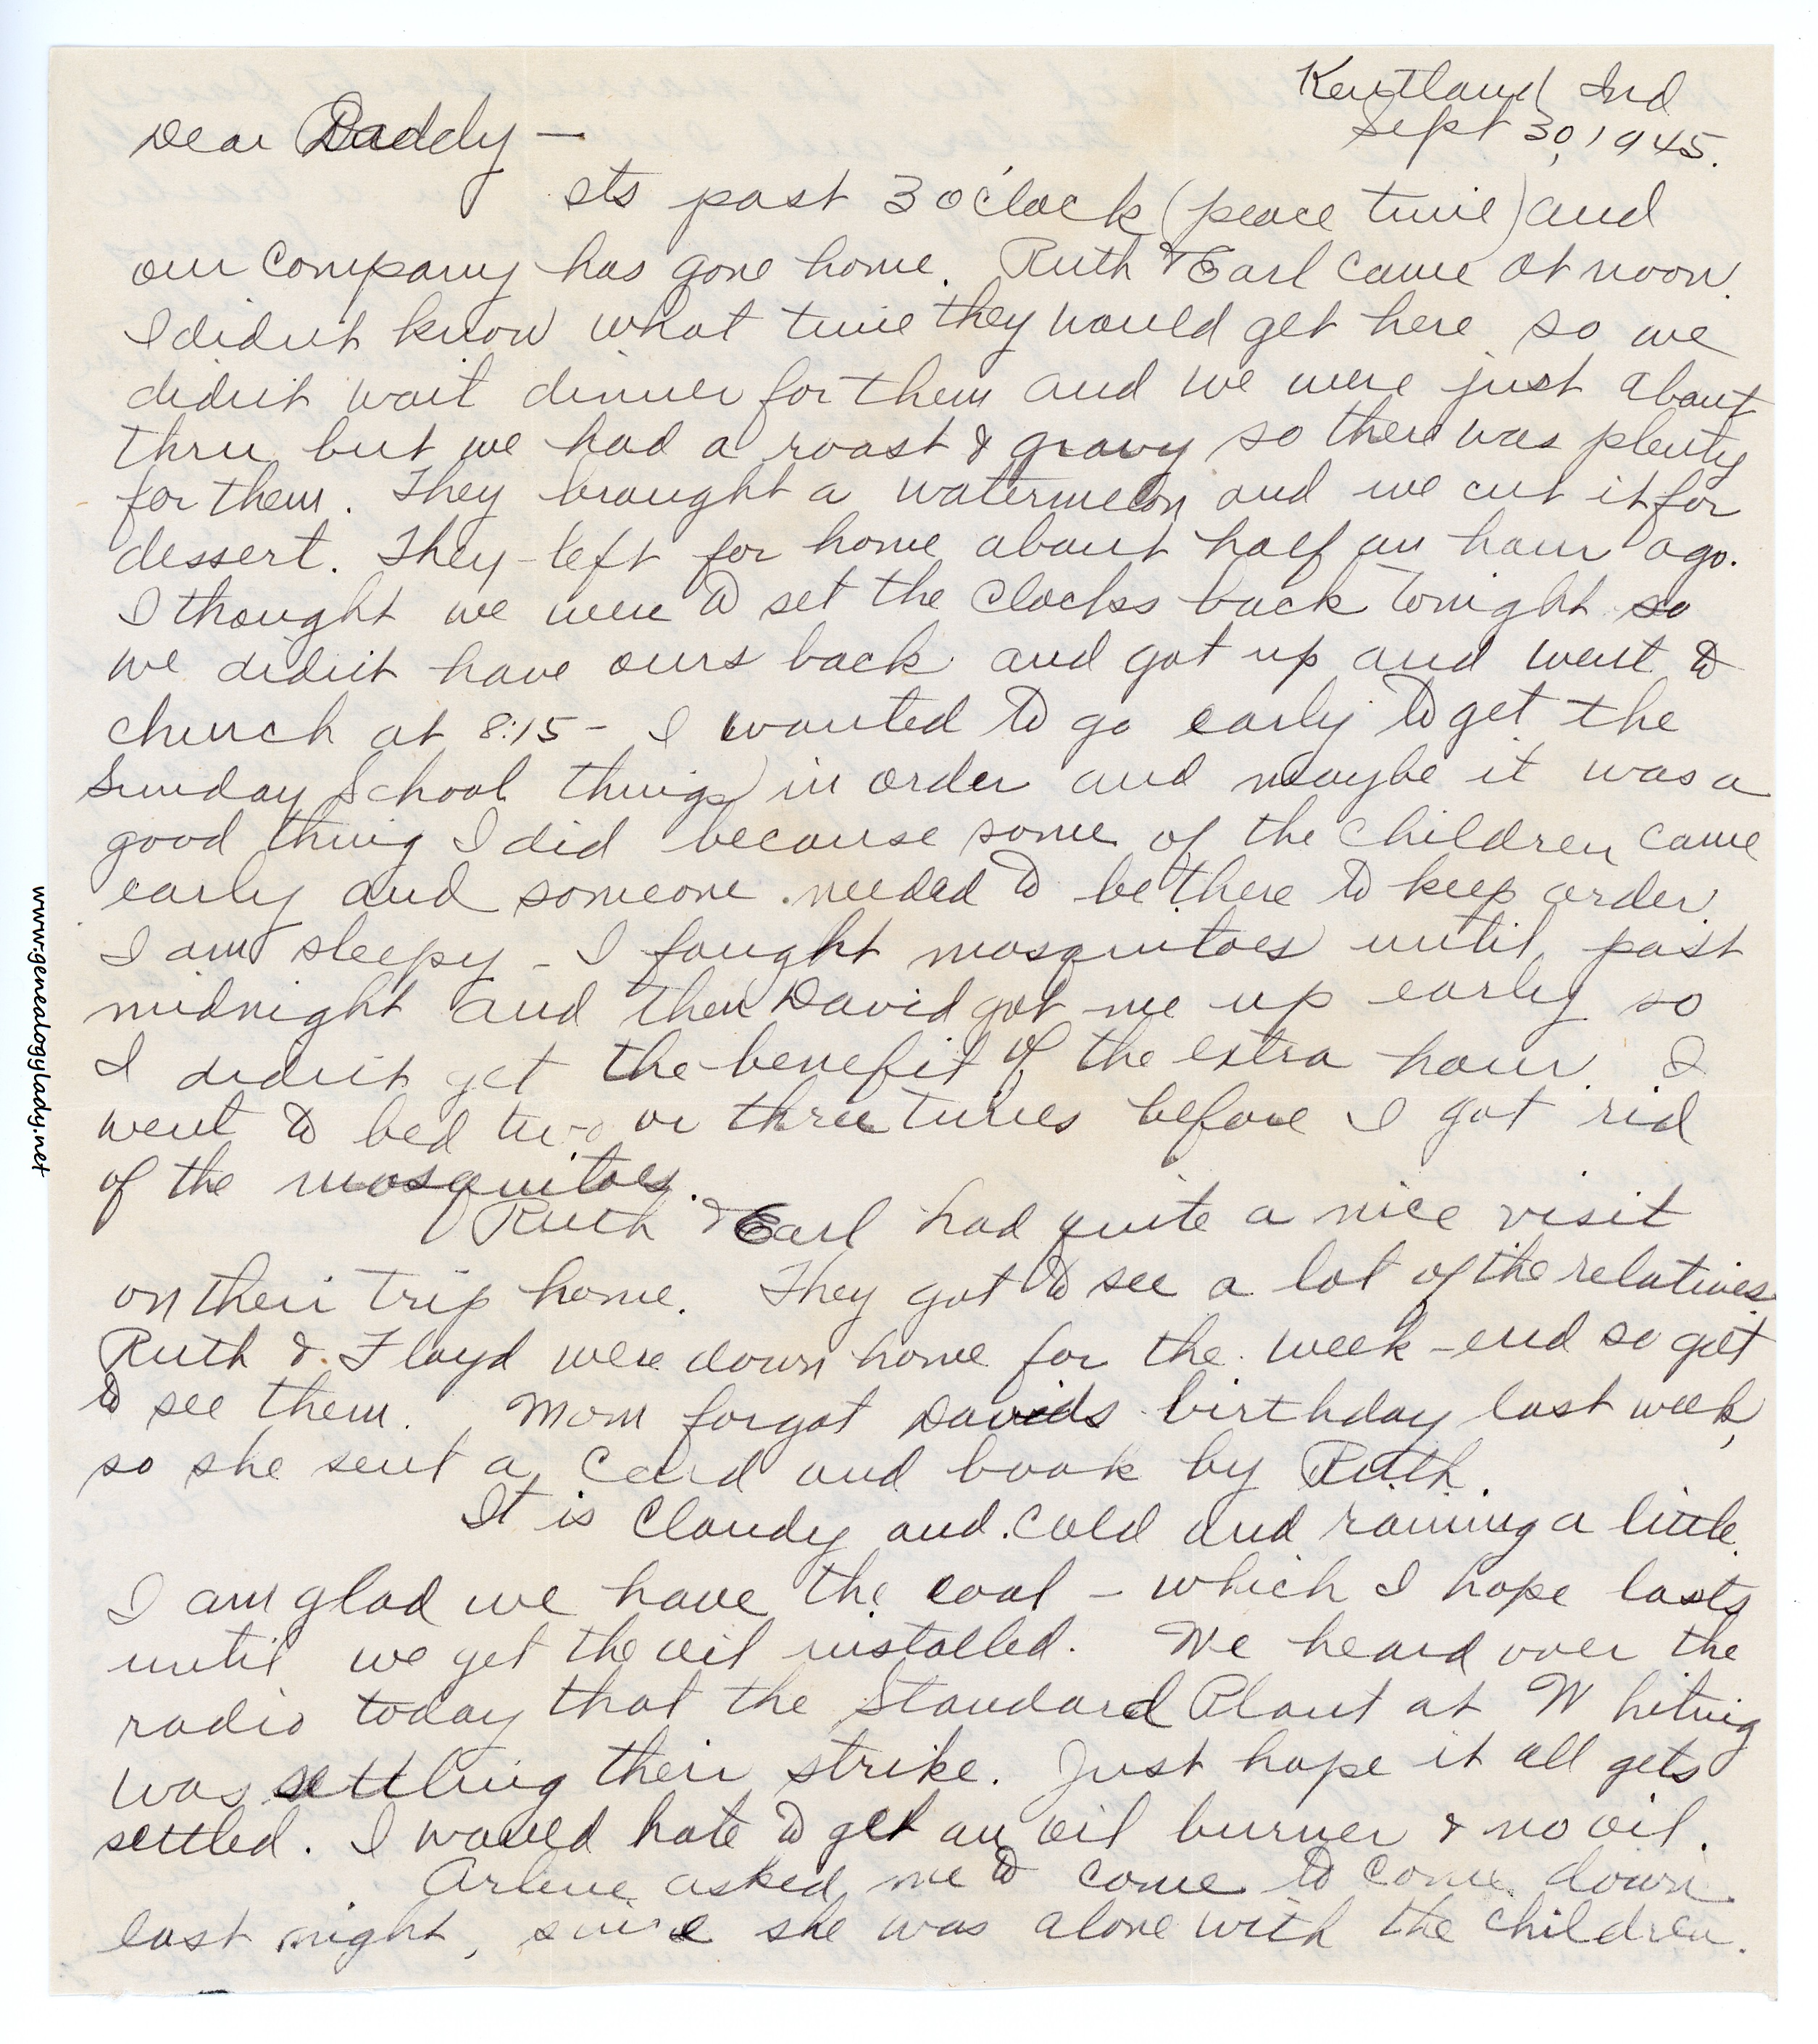 Kentland Ind
Sept 30, 1945.
Dear Daddy —
Its past 3 o'clock (peace time) and
our company has gone home. Ruth & Earl came at noon.
I didn't know what time they would get here so we
didn't wait dinner for them and we were just about
thru but we had a roast & gravy so there was plenty
for them. They brought a watermelon and we cut it for
dessert. They left for home about half an hour ago.
I thought we were to set the clocks back tonight so
we didn't have ours back and got up and went to
church at 8:15 - I wanted to go early to get the
Sunday School things in order and maybe it was a
good thing I did because some of the children came
early and someone needed to be there to keep order.
I am sleepy - I fought mosquitoes until past
midnight and then David got me up early so
I didn't get the benefit of the extra hour. I
went to bed two or three times before I got rid
of the mosquitoes.
Ruth & Earl had quite a nice visit
on their trip home. They got to see a lot of the relatives.
Ruth & Floyd were down home for the week-end so got
to see them. Mom forgot Davids birthday last week,
so she sent a card and book by Ruth.
It is cloudy and cold and raining a little.
I am glad we have the coal - which I hope lasts
until we get the oil installed. We heard over the
radio today that the Standard Plant at Whiting
was settling their strike. Just hope it all gets
settled. I would hate to get an oil burner & no oil.
Arlene asked me to come to come down
last night, since she was alone with the children.
www.genealogylady.net